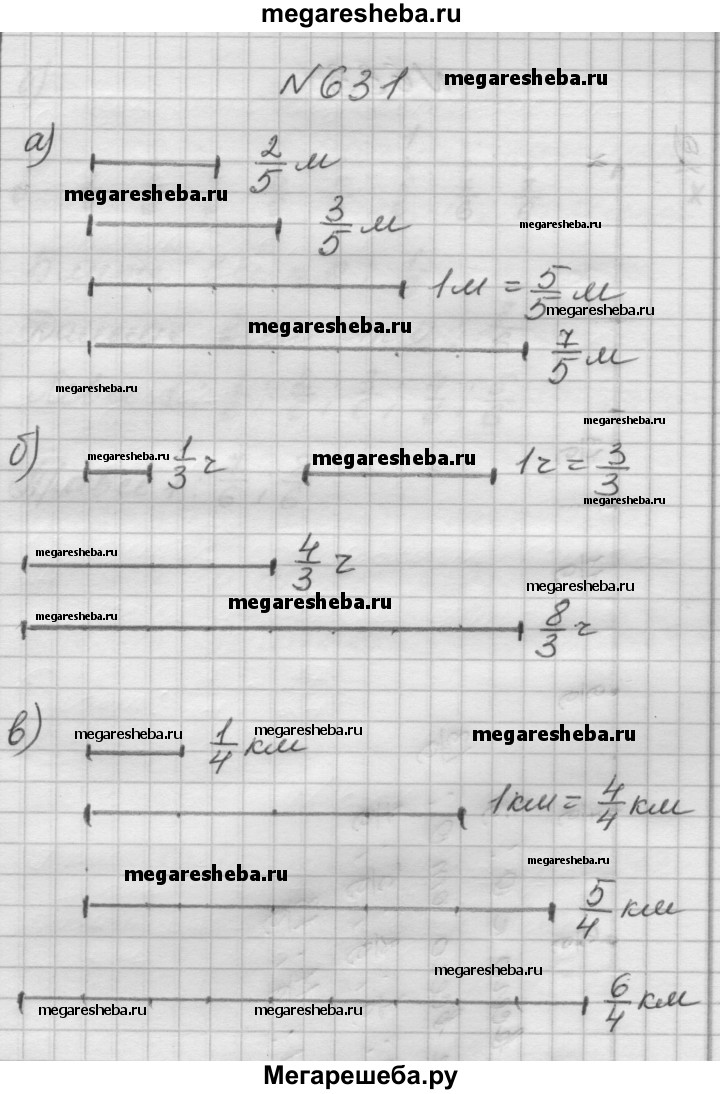 megaresheba.ru
N631 megaresheba.ru
а) 2/5 м
megaresheba.ru
3/5 м megaresheba.ru
1м = 5/5 м
megaresheba.ru
megaresheba.ru
7/5 м
megaresheba.ru
megaresheba.ru
б) megaresheba.ru 1/3 ч megaresheba.ru 1ч = 3/3
megaresheba.ru
megaresheba.ru 4/3 ч
megaresheba.ru
megaresheba.ru
megaresheba.ru 8/3 ч
в) megaresheba.ru 1/4 км megaresheba.ru megaresheba.ru
1км = 4/4 км
megaresheba.ru
megaresheba.ru
5/4 км
megaresheba.ru
megaresheba.ru megaresheba.ru 6/4 км
Мегарешеба.ру